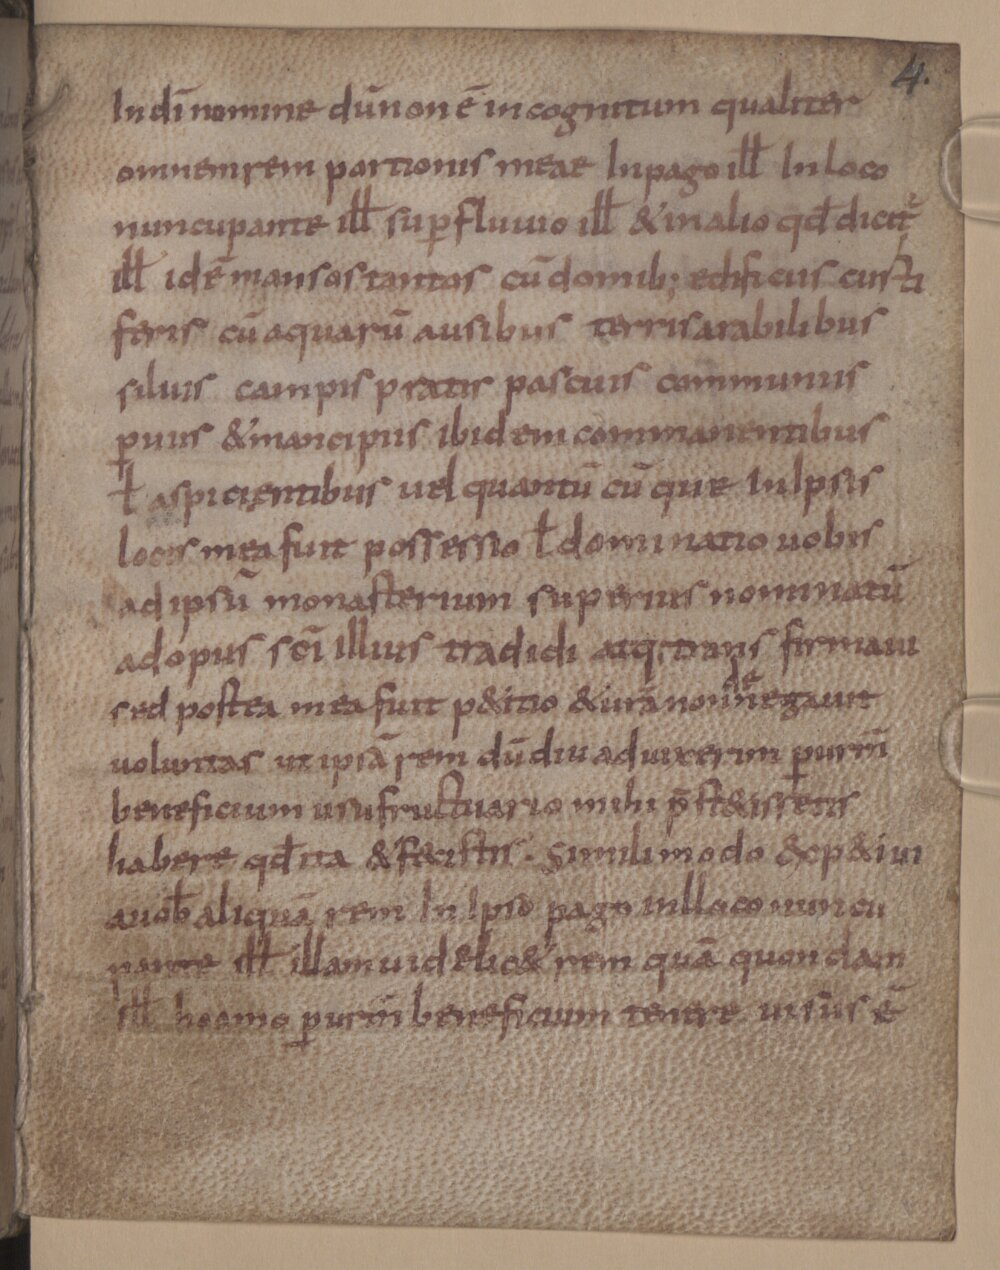 4.
In dī nomine dū non ē incognitum qualiter
omnem rem portionis meae In pago ill̄ In loco
nuncupante ill̄ sup fluuio ill̄ & in alio qd̄ dicit̄
ill̄ id ē mansos tantos cū domib; edificiis
feris cū aquarū ausibus terris arabilibus
siluis campis pratis pascuis communiis
p̱uiis & mancipiis ibidem commanentibus
ł aspicientibus uel quantū cūque In Ipsis
locis mea fuit possessio ł dominatio uobis
ad ipsū monasterium superius nominatū
ad opus scī illius tradidi atq; trans firmaui
sed postea mea fuit p&itio & urā non denegauit
uoluntas ut ipsā rem dū diu aduixerim p̱ urm̄
beneficium usufructuario mihi p̄st&issetis
habere qd̄ ita & fecistis. Simili modo &
a uob̄ aliquā rem In Ipso pago in loco nuncu
pante ill̄ illam uidelic& rem quā quondam
ill̄ homo p̱ urm̄ beneficium tenere uisus ē